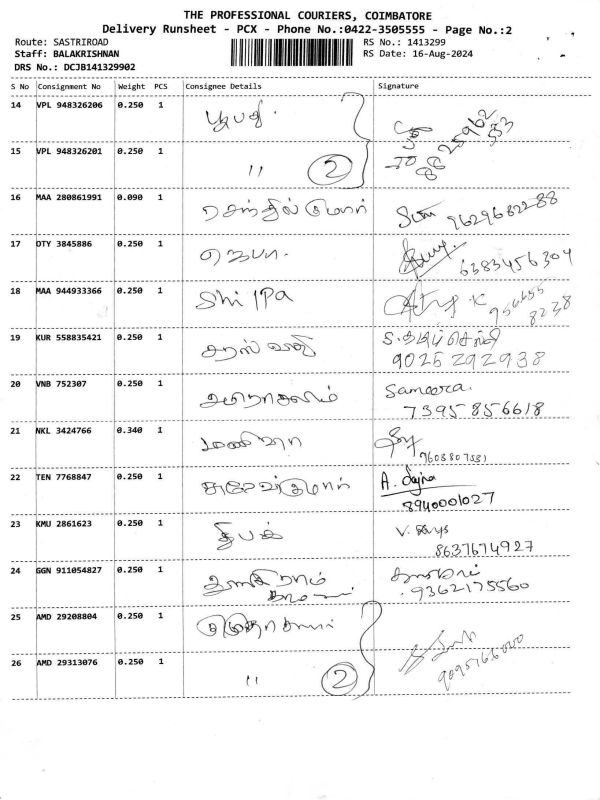 THE PROFESSIONAL COURIERS, COIMBATORE
Delivery Runsheet - PCX - Phone No.:0422-3505555 - Page No.:2
Route: SASTRIROAD RS No.: 1413299
Staff: BALAKRISHNAN RS Date: 16-Aug-2024
DRS No.: DCJB141329902
S No Consignment No Weight PCS Consignee Details Signature
14 VPL 948326206 0.250 1 பூபதி.
15 VPL 948326201 0.250 1 " 2
16 MAA 280861991 0.090 1 செந்தில் குமார் 9629682288
17 OTY 3845886 0.250 1 ஜெபா. 6383456304
18 MAA 944933366 0.250 1 Shilpa
19 KUR 558835421 0.250 1 சரஸ்வதி 9025292938
20 VNB 752307 0.250 1 Sameera.
7395856618
21 NKL 3424766 0.340 1 9603807531
22 TEN 7768847 0.250 1 A.
8940001027
23 KMU 2861623 0.250 1 தீபக் V.
8637674927
24 GGN 911054827 0.250 1
9362175560
25 AMD 29208804 0.250 1
26 AMD 29313076 0.250 1 " 2